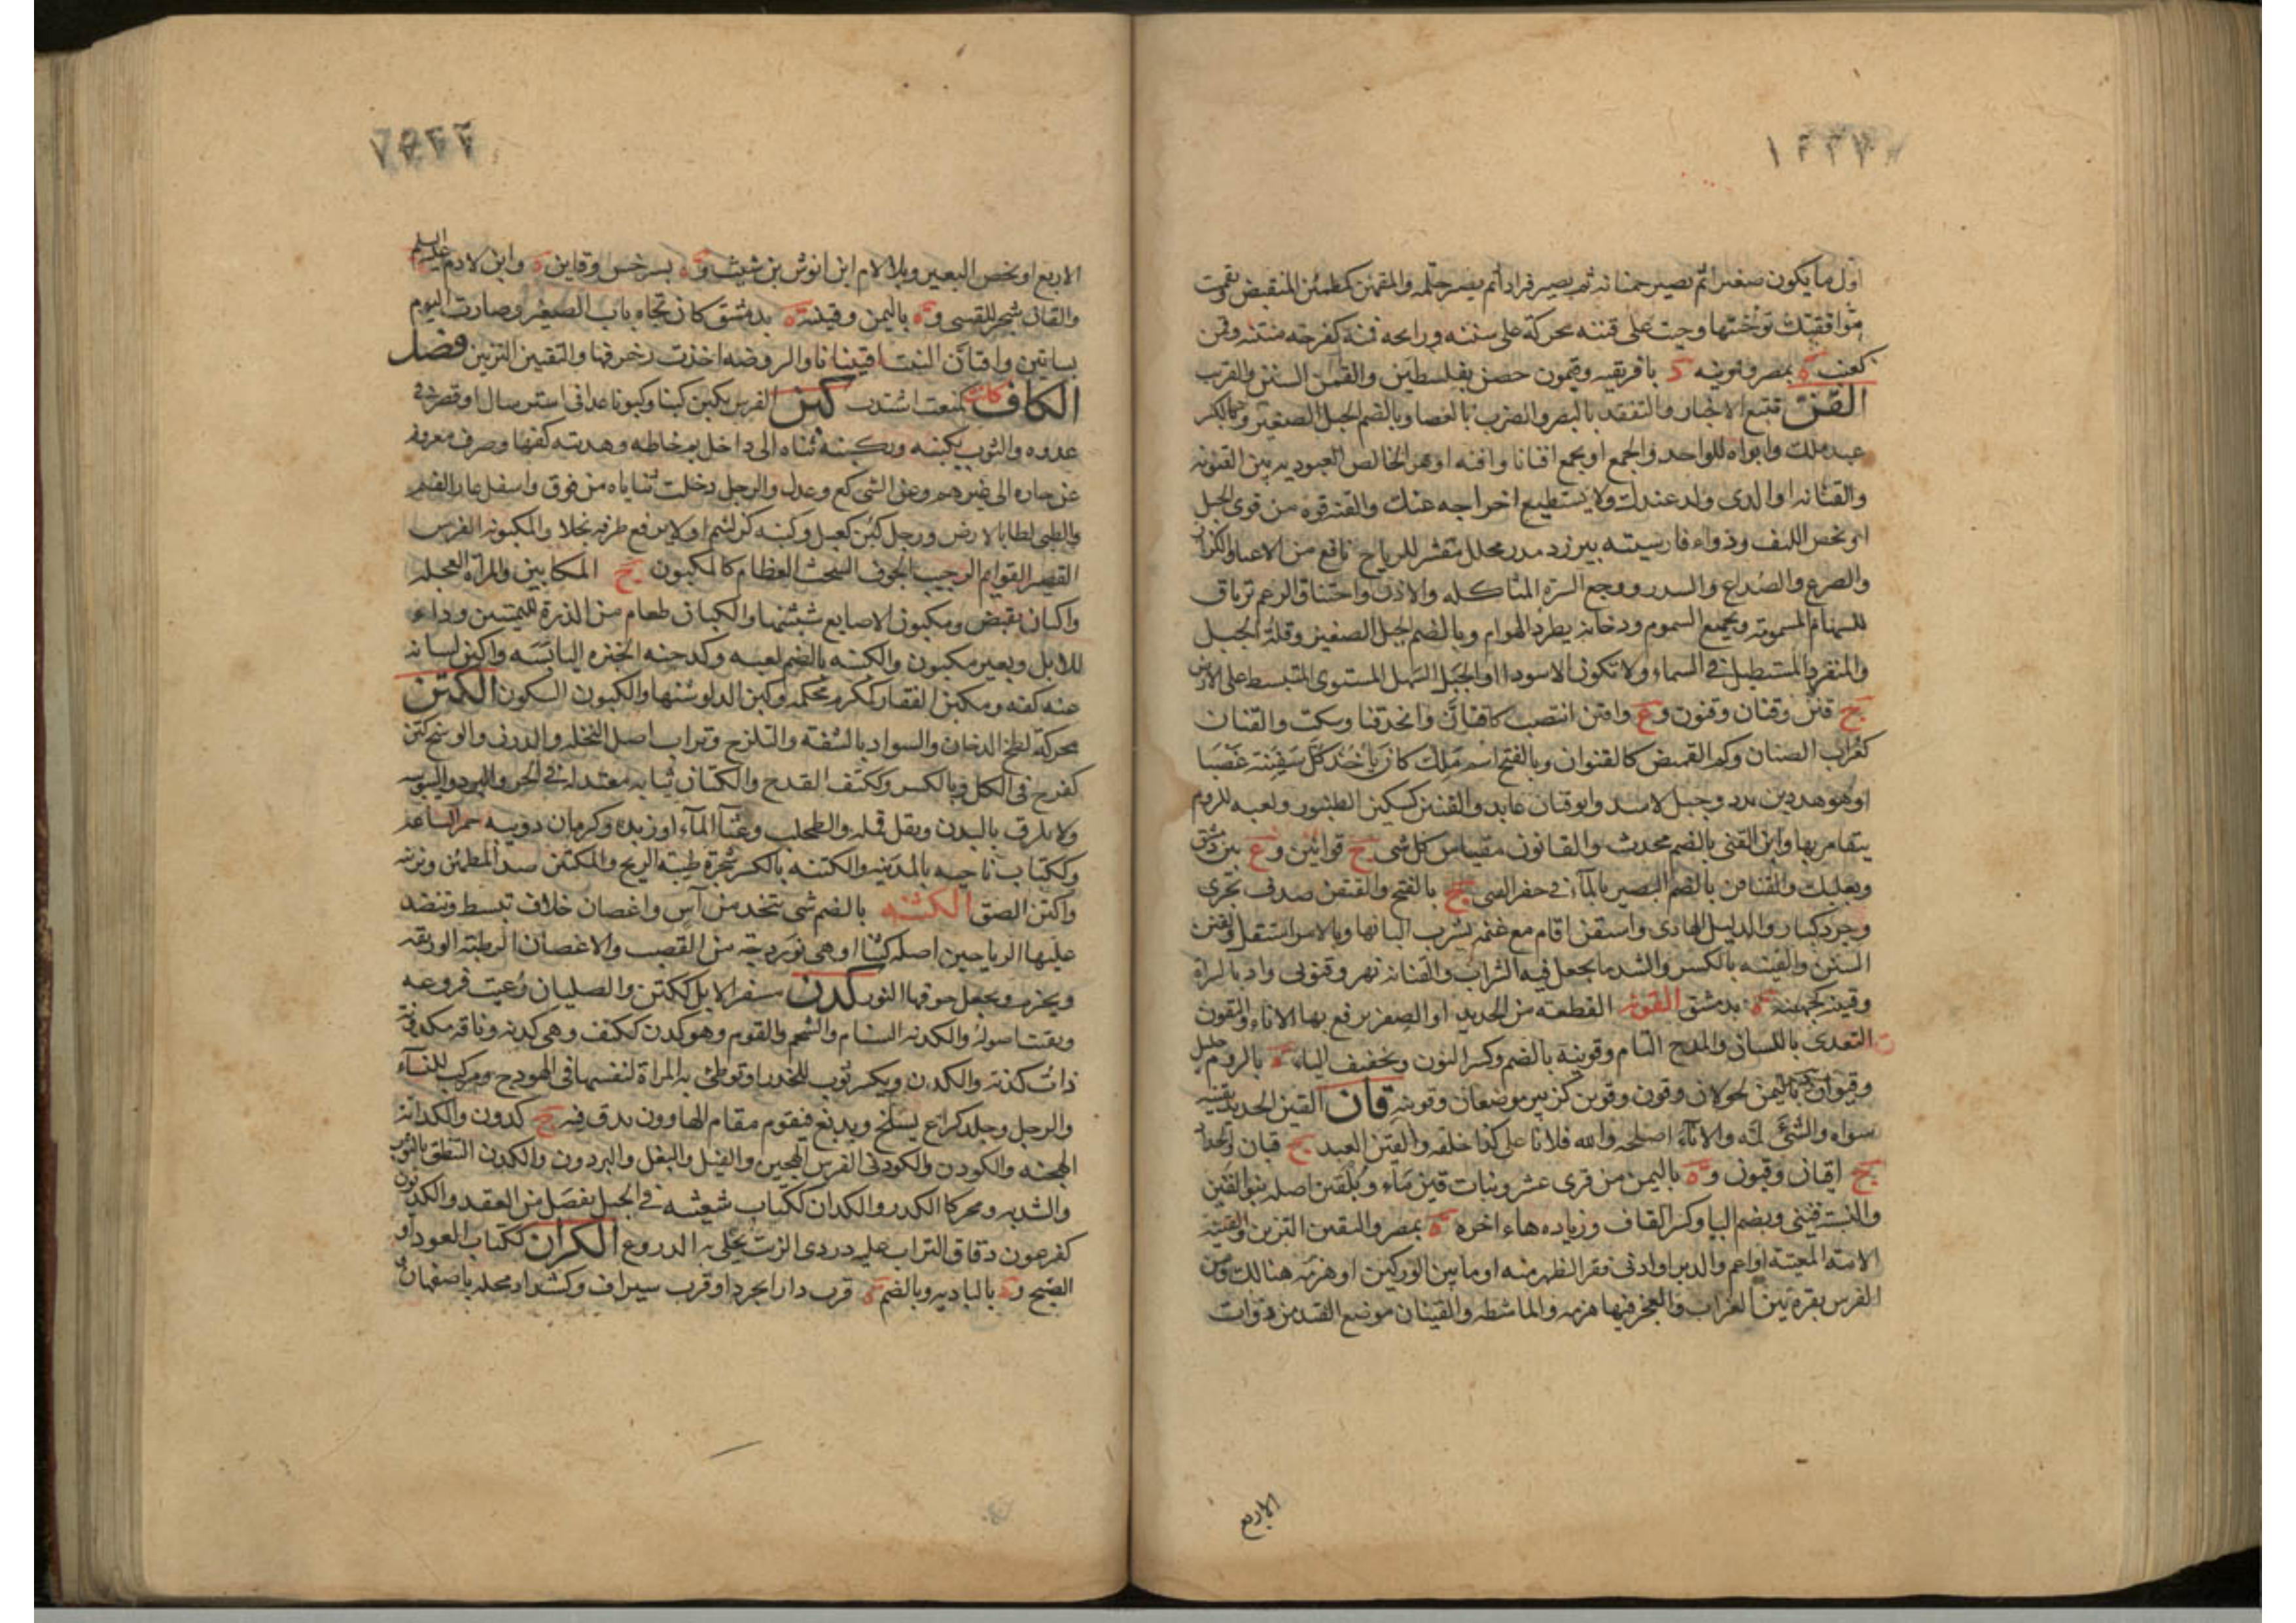 اول ما يكون صغيرا ثم يصير حمنانة ثم يصير قرادا ثم يصير حلمة والمقمئن كمطمئن المنقبض تقمت
موافقتك توخيتها وجئت على قمنه محركة على سننه ورائحة قمنة كفرحة منتنة وقمن
كعنب ة بمصر وقمونية د بافريقية وقيمون حصن بفلسطين والقمن السنن والقرب
القن تتبع الاخبار والتفقد بالبصر والضرب بالعصا وبالضم الجبل الصغير وبالكسر
عبد ملك وابواه للواحد والجمع او يجمع اقنانا واقنة او هو الخالص العبودية بين القنونة
والقنانة او الذى ولد عندك ولا يستطيع اخراجه عنك والقنة قوة من قوى الحبل
او يخص الليف ودواء فارسيته بيرزد مدر محلل مفش للرياح نافع من الاعياء والكزاز
والصرع والصداع والسدر ووجع السن المتاكلة والاذن واختناق الرحم ترياق
للسهام المسمومة ولجميع السموم ودخانه يطرد الهوام وبالضم الجبل الصغير وقلة الجبل
والمنفرد المستطيل فى السماء ولا تكون الا سودا او الجبل السهل المستوى المنبسط على الارض
ج قنن وقنان وقنون و ع واقتن انتصب كاقنأن واتخذ قنا وسكت والقنان
كغراب الصنان وكم القميص كالقنوان وبالفتح اسم ملك كان يأخذ كل سفينة غصبا
او هو هدد بن بدد وجبل لاسد وابو قنان عابد والقنين كسكين الطنبور ولعبة للروم
يتقامر بها وابن القنى بالضم محدث والقانون مقياس كل شى ج قوانين و ع بين دمشق
وبعلبك والقناقن بالضم البصير بالماء فى حفر القنى ج بالفتح والقنقن صدف بحرى
وجرذ كبار والدليل الهادى واستقن اقام مع غنمه يشرب البانها وبالامر استقل والقنن
السنن والقنينة بالكسر والشد ما يجعل فيه الشراب والقنانة نهر وقنونى واد بالسراة
وقنينة كجهينة ة بدمشق القونة القطعة من الحديد او الصفر يرقع بها الاناء والتقون
التعدى باللسان والمدح التام وقونية بالضم وكسر النون وتخفيف الياء د بالروم
وقيوان باليمن لخولان وقون وقوين كزبير موضعان وقوينة قان القين الحديد يقينه
سواه والشئ لمه والاناء اصلحه والله فلانا على كذا خلقه والقين العبد ج قيان والحداد
ج اقيان وقيون و ة باليمن من قرى عثر وبنات قين ماء وبلقين اصله بنو القين
والنسبة قينى وبضم اليا وكسر القاف وزيادة هاء اخره ة بمصر والتقين التزين والقينة
الامة المغنية او اعم والدبر او ادنى فقر الظهر منه او ما بين الوركين او هزمة هنالك ومن
الفرس نقرة بين الغراب والعجز فيها هزمة والماشطة والقينان موضع القيد من ذوات
الاربع
الاربع او يخص البعير وبلا لام ابن انوش بن شيث و ة بسرخس وقاين د وابن لادم عليه السلم
والقان شجر للقسى و ة باليمن وقينية ة بدمشق كان تجاه باب الصغير وصارت اليوم
بساتين واقتأن النبت اقتينانا والروضة اخذت زخرفها والتقيين التزيين فصل
الكاف كأن كمنعت اشتدت كبن الفرس يكبن كبنا وكبونا عدا فى استرسال او قصر فى
عدوه والثوب يكبنه ويكبنه ثناه الى داخل ثم خاطه وهديته كفها وصرف معروفه
عن جاره الى غيرهم وعن الشى كع وعدل والرجل دخلت ثناياه من فوق واسفل غار الفم
والظبى لطا بالارض ورجل كبن كعتل وكبنة كز لئيم او لا يرفع طرفه بخلا والمكبونة الفرس
القصير القوايم الرحيب الجوف الشخت العظام كالمكبون ج المكابين والمراة العجلة
واكبان تقبض ومكبون الاصابع شثنها والكبان طعام من الذرة لليمنيين وداء
للابل وبعير مكبون والكبنة بالضم لعبة وكدجنة الخبزة اليابسة واكبن لسانه
عنه كفه ومكبن الفقار ككرم محكمه وكبن الدلو شفتها والكبون السكون الكتن
محركة لطخ الدخان والسواد بالشفة والتلزج وتراب اصل النخلة والدرن والوسخ كتن
كفرح فى الكل وبالكسر وككتف القدح والكتان ثيابه معتدلة فى الحر والبرد واليبوسة
ولا يلزق بالبدن ويقل قمله والطحلب وغثاء الماء او زبده وكرمان دويبة حمراء لساعة
وككتاب ناحية بالمدينة والكتنة بالكسر شجرة طيبة الريح والمكتئن ضد المطمئن وزنة
واكتن الصق الكثنة بالضم شى يتخذ من آس واغصان خلاف تبسط وتنضد
عليها الرياحين اصله كثا او هى نوردجة من القصب والاغصان الرطبة الوريقة
ويحزم ويجعل جوفها النور كدن مشفر الابل ككتن والصليان رعيت فروعه
وبقيت اصوله والكدنة السنام والشحم والقوم وهو كدن ككتف وهى كدنة وناقة مكدنة
ذات كدنة والكدن ويكسر ثوب للخدر او توطئ به المراة لنفسها فى الهودج ومركب للنسآء
والرجل وجلد كراع يسلخ ويدبغ فيقوم مقام الهاوون يدق فيه ج كدون والكدانة
الهجنة والكودن والكودنى الفرس الهجين والفيل والبغل والبرذون والكدن التنطق بالثوب
والشد به ومحركا الكدر والكدان ككتاب شعبة فى الحبل يفصل من العقد والكديون
كفرعون دقاق التراب عليه دردى الزيت تجلى به الدروع الكران ككتاب العود او
الصنج و ة بالبادية وبالضم ة قرب دارابجرد او قرب سيراف وكشداد محلة باصفهان